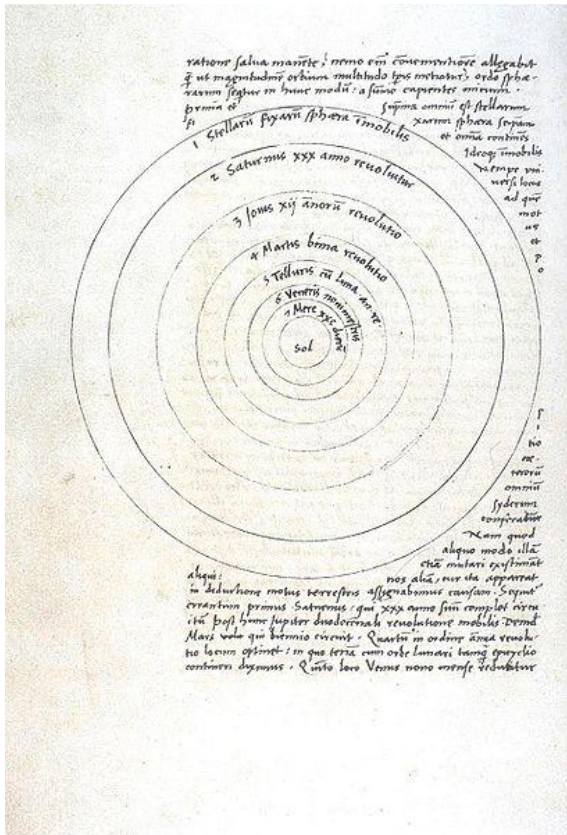 ratione salua manēte, nemo em̄ cōuenientiorē allegabit
q̄ ut magnitudinē orbium multitudo tp̄is metiatur, ordo sphæ-
rarum seqtur in hunc modū: a sum̄o capientes initium.
prima et suprema omniū est stellarum
fi xarum sphæra seipsam
et omnia continēs
Ideoq; īmobilis
nempe uni
uersi locus
ad quē
mot
us
et
p
o
1 Stellarū fixarū sphæra īmobilis
2 Saturnus xxx anno reuoluitur
3 Jouis xij annorū reuolutio
4 Martis bima reuolutio
5 Telluris cū luna an. re.
6 Veneris nonimestris
7 Merc xxc dierū
Sol
tio
cæ-
terorū
omniū
syderum
conferatur
Nam quod
aliquo modo illā
etiā mutari existimāt
aliqui: nos aliā, cur ita appareat
in deductione motus terrestris assignabimus causam. Sequit
errantium primus Saturnus: qui xxx anno suū complet circu
itū post hunc Jupiter duodecennali reuolutione mobilis. Deinde
Mars qui biennio circuit. Quartū in ordine annua reuolu-
tio locum optinet: in quo terrā cum orbe lunari tamq̄ epicyclio
contineri diximus. Quinto loco Venus nono mense reducitur